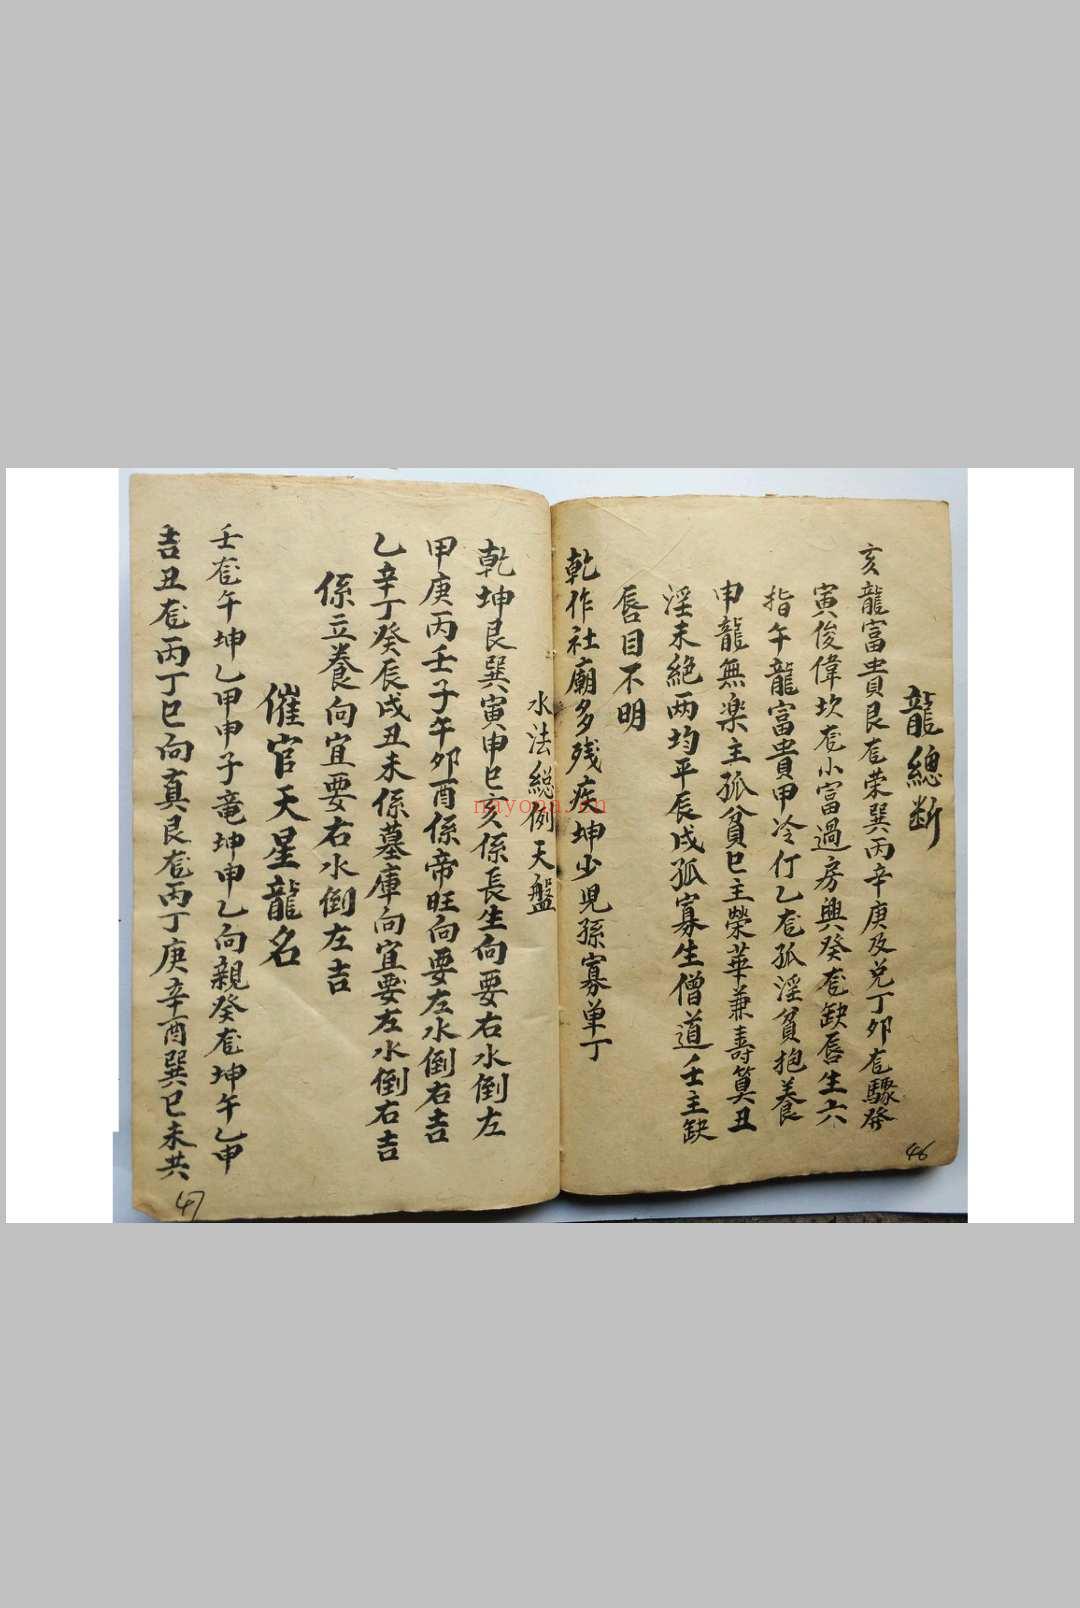 龍總断
亥龍富貴艮龙荣巽丙辛庚及兑丁卯龙驟發
寅俊偉坎龙小富過房興癸龙缺唇生六
指午龍富貴甲冷仃乙龙孤淫貧抱養
申龍無楽主孤貧巳主榮華兼壽算丑
淫未絕两均平辰戌孤寡生僧道壬主缺
唇目不明
乾作社廟多残疾坤少児孫寡单丁
水法総例天盤
乾坤艮巽寅申巳亥係長生向要右水倒左
甲庚丙壬子午卯酉係帝旺向要左水倒右吉
乙辛丁癸辰戌丑未係墓庫向宜要左水倒右吉
係立養向宜要右水倒左吉
催官天星龍名
壬龙午坤乙甲申子竜坤申乙向親癸龙坤午乙申
吉丑龙丙丁巳向真艮龙丙丁庚辛酉巽巳未共
46
47
nayona.cn